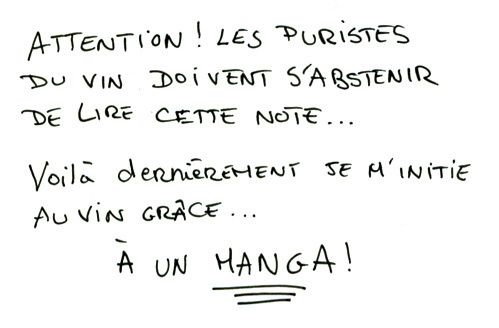 ATTENTION ! LES PURISTES
DU VIN DOIVENT S'ABSTENIR
DE LIRE CETTE NOTE...
Voilà dernièrement je m'initie
AU VIN GRÂCE...
À UN MANGA !